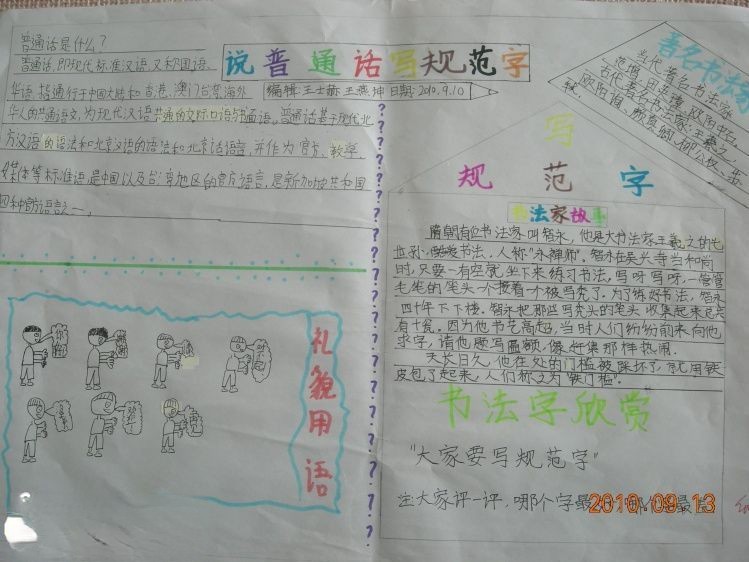 普通话是什么?
普通话,即现代标准汉语,又称国语、
华语,指通行于中国大陆和香港、澳门台湾、海外
华人的共通语文,为现代汉语共通的交际口语与书面语。普通话基于现代北
方汉语的语法和北京汉语的语法和北京话语音,并作为官方、教学、
媒体等标准语,是中国以及台湾地区的官方语言,是新加坡共和国
四种官方语言之一。
说普通话写规范字
编辑:王士 王燕坤 日期:2010.9.10
著名书法家
当代著名书法家
范增、田英章、欧阳中石。
古代著名书法家:王羲之、
欧阳询、颜真卿、柳公权、
写
规范字
书法家故事
隋朝有位书法家叫智永,他是大书法家王羲之的七
世孙,酷爱书法,人称"永禅师"。智永在吴兴寺当和尚
时,只要一有空就坐下来练习书法,写呀写呀,一管管
毛笔的笔头一个接着一个被写秃了。为了练好书法,智永
四十年下下楼。智永把那些写秃头的笔头收集起来足足
有十瓮。因为他书艺高超,当时人们纷纷前来向他
求字,请他题写匾额,像赶集那样热闹。
天长日久,他在处的门槛被踩坏了,就用铁
皮包了起来,人们称之为"铁门槛"。
礼貌用语
书法字欣赏
"大家要写规范字"
注大家评一评,哪个字最
2010.09.13